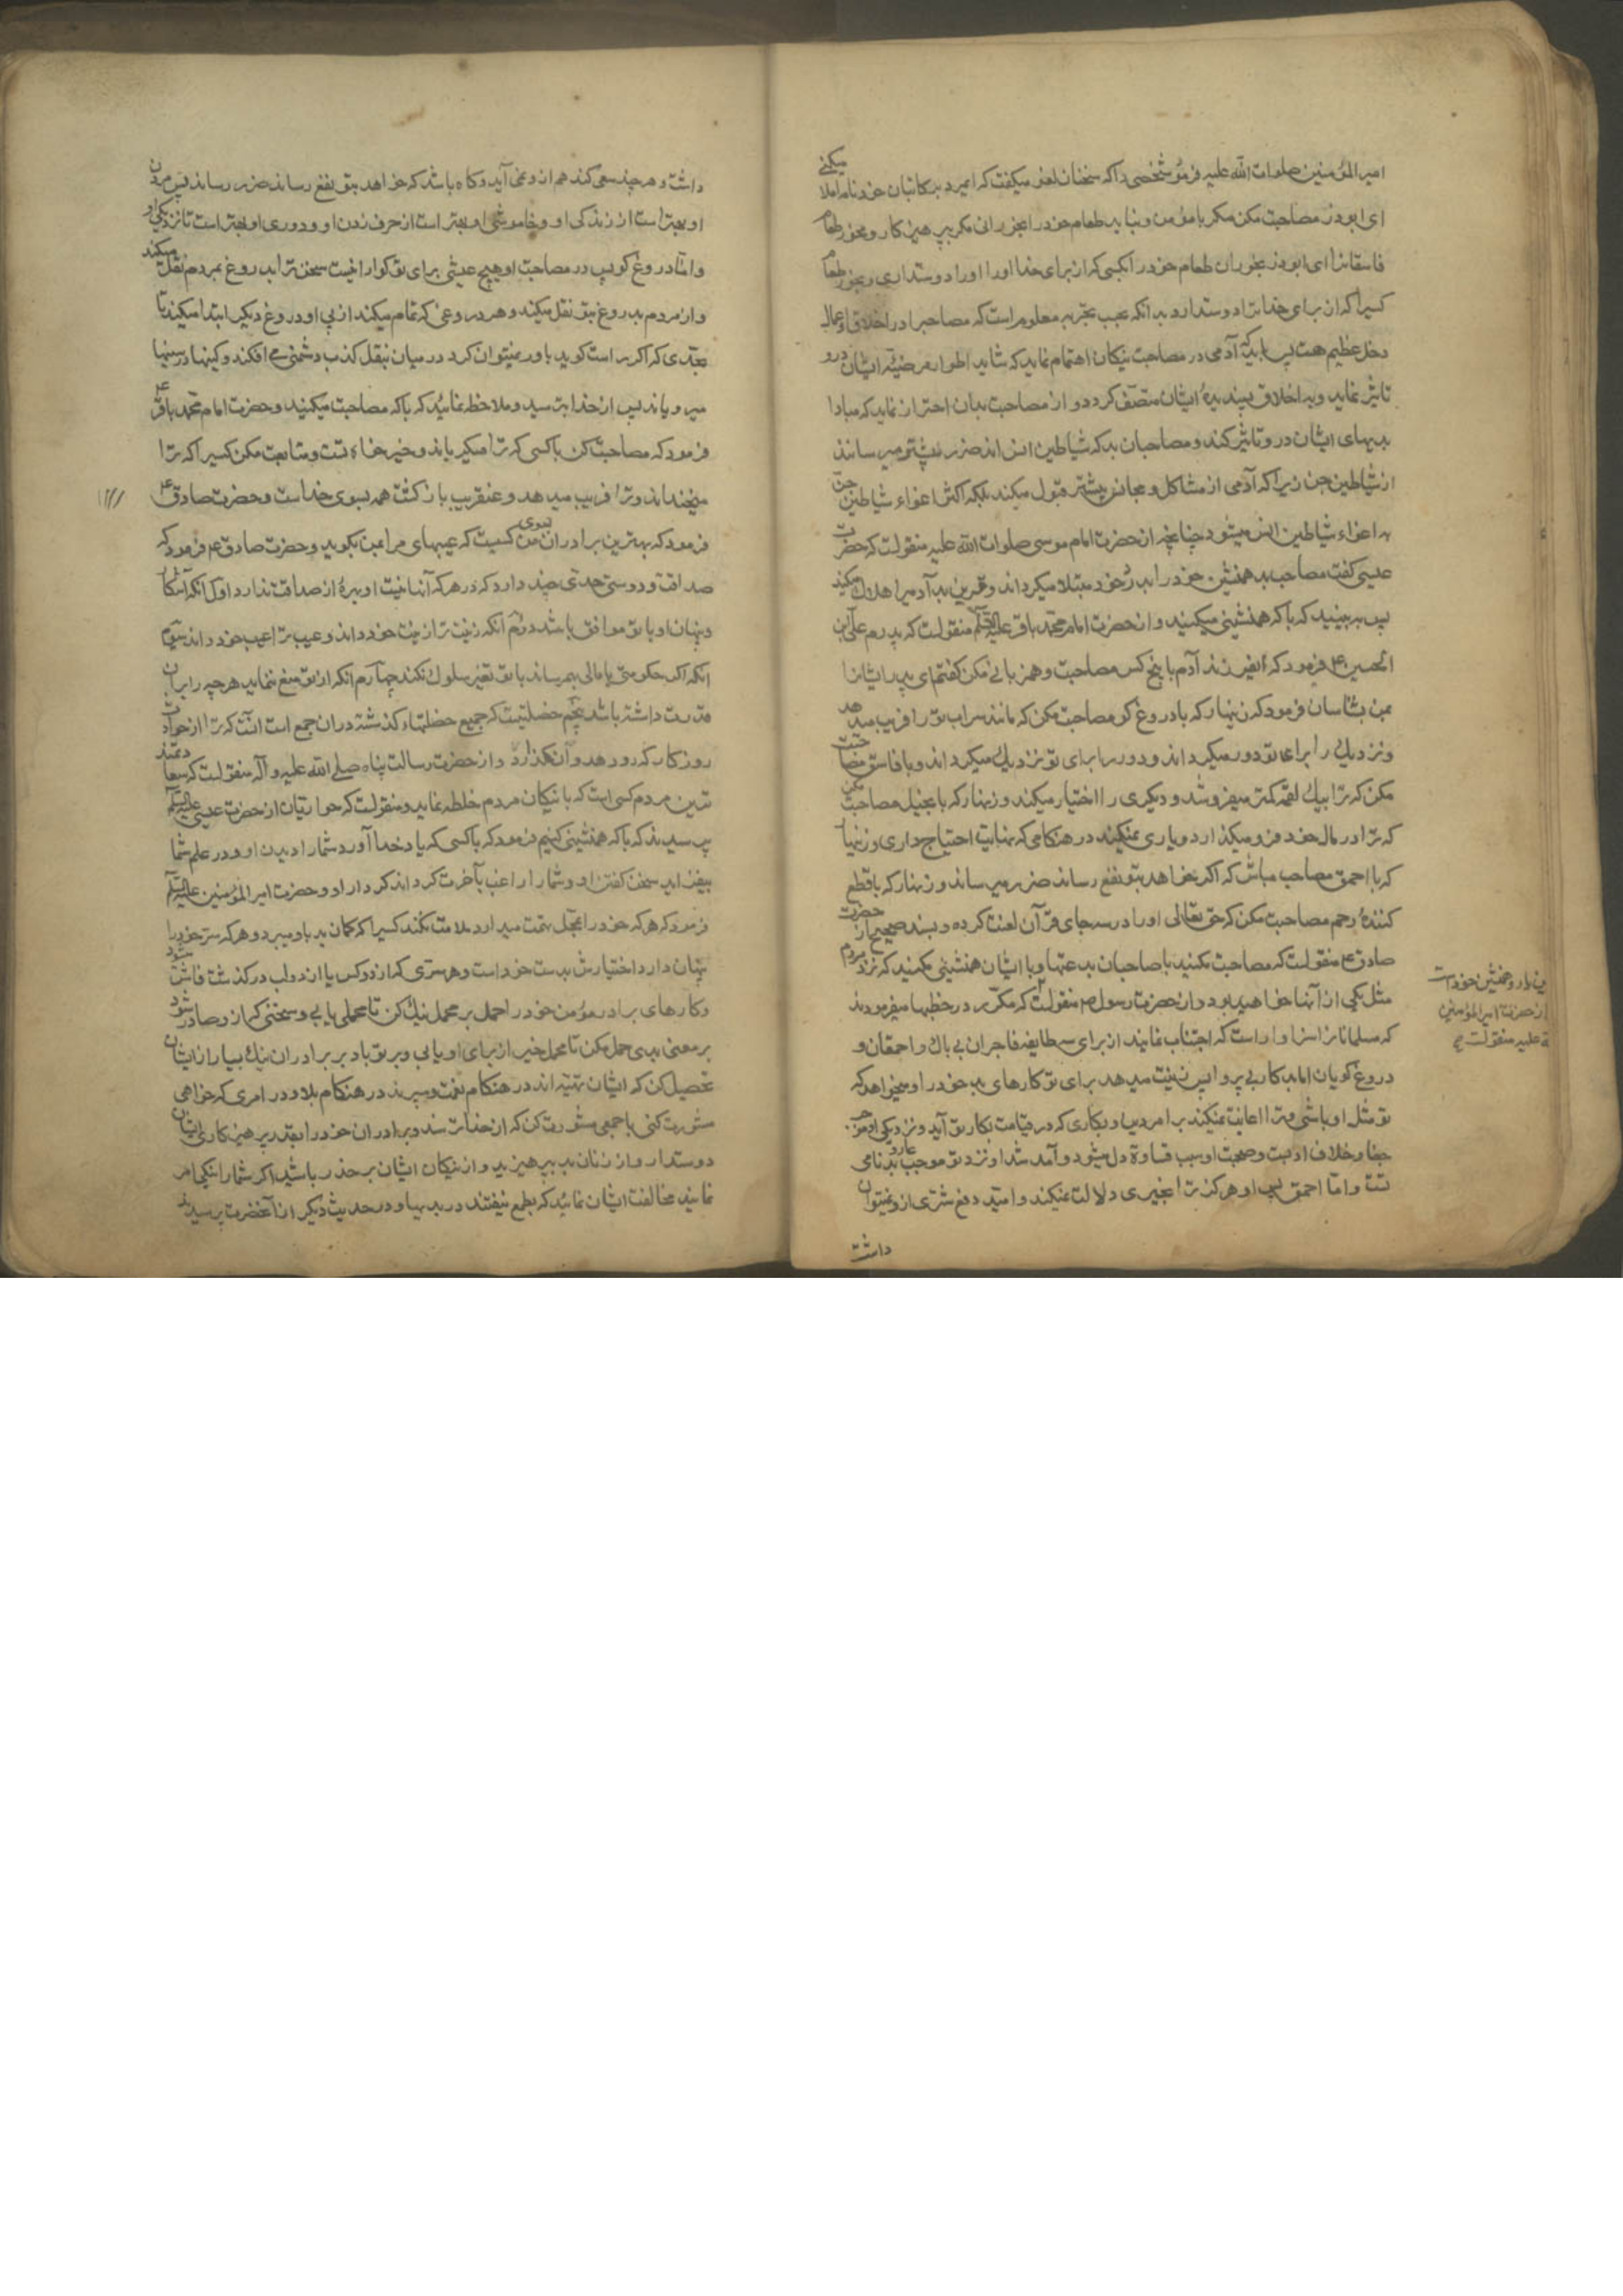 امیر المؤمنین صلوات الله علیه فرمود شخصی را که سخنان لغو میگفت که ایمرد بر کاتبان خود نامه املا میکنی
ای ابوذر مصاحبت مکن مگر با مؤمن و نباید طعام خود را بخورانی مگر بپرهیزکار و مخور طعام
فاسقانرا ای ابوذر بخوران طعام خود را بکسی که از برای خدا او را دوستداری و بخور طعام
کسیرا که از برای خدا ترا دوستدارد بدانکه بحسب تجربه معلوم است که مصاحبرا در اخلاق و اعمال
دخل عظیم هست پس باید که آدمی در مصاحبت نیکان اهتمام نماید که شاید اطوار مرضیّه ایشان درو
تاثیر نماید و به اخلاق پسندیدهٔ ایشان متصّف گردد و از مصاحبت بدان احتراز نماید که مبادا
بدیهای ایشان درو تاثیر کند و مصاحبان بد که شیاطین انس‌اند ضرر بیشتر میرسانند
از شیاطین جن زیرا که آدمی از مشاکل و مجانس بیشتر قبول میکند بلکه اکثر اغواء شیاطین جنّ
به اغواء شیاطین انس میشود چنانچه از حضرت امام موسی صلوات الله علیه منقولست که حضرت
عیسی گفت مصاحب بد همنشین خود را ببد خود مبتلا میگرداند و قرین بد آدمیرا هلاک میکند
پس ببینید که با که همنشینی میکنید و از حضرت امام محمد باقر علیه السّلم منقولست که پدرم علی ابن
الحسین ع فرمود که ایفرزند آدم با پنج کس مصاحبت و همزبانی مکن گفتم ای پدر ایشانرا
بمن بشناسان فرمود که زینهار که با دروغ گو مصاحبت مکن که مانند سراب تو را فریب میدهد
و نزدیک را برای تو دور میگرداند و دور را برای تو نزدیک میگرداند و با فاسق مصاحبت
مکن که ترا بیک لقمه کمتر میفروشد و دیگری را اختیار میکند و زینهار که با بخیل مصاحبت مکن
که ترا در مال خود فرو میگذارد و یاری نمیکند در هنگامی که نهایت احتیاج داری و زینهار
که با احمق مصاحب مباش که اگر خواهد بتو نفع رساند ضرر میرساند و زینهار که با قطع
کنندهٔ رحم مصاحبت مکن که حق تعالی او را در سه جای قرآن لعنت کرده و بسند صحیح از حضرت
صادق ع منقولست که مصاحبت مکنید با صاحبان بدعتها و با ایشان همنشینی مکنید که نزد مردم
مثل یکی از آنها خواهید بود و از حضرت رسول ص منقولست که مکرّر در خطبها میفرمودند
که مسلمانانرا سزاوار است که اجتناب نمایند از برای سه طایفه فاجران بی باک و احمقان و
دروغ گویان اما بدکار بی پروا پس زینت میدهد برای تو کارهای بد خود را و میخواهد که
تو مثل او باشی و ترا اعانت نمیکند بر امر دین و بکاری که در قیامت بکار تو آید و نزدیکی او موجب
جفا و خلاف ادبست و صحبت او سبب قساوة دل میشود و آمد شد او نزد تو موجب عار و بدنامی
تست و امّا احمق پس او هرگز ترا بخیری دلالت نمیکند و امید دفع شرّی ازو نمیتوان
داشت
دین یار و همنشین خود است
از حضرت امیر المؤمنین
علیه منقولست
داشت و هر چند سعی کند هم ازو نمی آید و گاه باشد که خواهد بتو نفع رساند ضرر رساند پس مردن
او بهتر است از زندگی او و خاموشی او بهتر است از حرف زدن او و دوری او بهتر است تا نزدیکی او
و امّا دروغ گو پس در مصاحبت او هیچ عیشی برای تو گوارا نیست سخن ترا بدروغ بمردم نقل میکند
و از مردم بدروغ بتو نقل میکند و هر دروغی که تمام میکند از پی او دروغ دیگر ابتدا میکند تا
بحدّی که اگر راست گوید باور نمیتوان کرد در میان بنقل کذب دشمنی می افکند و کینها در سینها
میرویاند پس از خدا بترسید و ملاحظه نمایید که با که مصاحبت میکنید و حضرت امام محمد باقر ع
فرمود که مصاحبت کن با کسی که ترا میگریاند و خیر خواه تست و متابعت مکن کسیرا که ترا
میخنداند و ترا فریب میدهد و عنقریب بازگشت همه بسوی خداست و حضرت صادق ع
فرمود که بهترین برادران من بسوی من کسیست که عیبهای مرا بمن بگوید و حضرت صادق ع فرمود که
صداقت و دوستی حدّی چند دارد که در هر که آنها نیست او بهرهٔ از صداقت ندارد اول آنکه آشکار
و پنهان او با تو موافق باشد دوّم آنکه زینت ترا زینت خود داند و عیب ترا عیب خود داند سیّوم
آنکه اگر حکومتی یا مالی بهم رساند با تو تغیّر سلوک نکند چهارم آنکه از تو منع ننماید هر چه را بران
قدرت داشته باشد پنجم خصلتیست که جمیع خصلتهاء گذشته دران جمع است آنست که ترا از حوادث
روزگار که رو دهد وا نگذارد و از حضرت رسالت پناه صلی الله علیه و آله منقولست که سعادتمند
ترین مردم کسی است که با نیکان مردم خلطه نماید و منقولست که حواریان از حضرت عیسی علیه السّلم
پرسیدند که با که همنشینی کنیم فرمود که با کسی که یاد خدا آورد شما را دیدن او و در علم شما
بیفزاید سخن گفتن او و شما را راغب بآخرت گرداند کردار او و حضرت امیر المؤمنین علیه السّلم
فرمود که هر که خود را بمحل تهمت میدارد ملامت نکند کسیرا که گمان بد باو میبرد و هر که سرّ خود را
پنهان دارد اختیارش بدست خود است و هر سرّی که از دو کس یا از دو لب درگذشت فاش شود
و کارهای برادر مؤمن خود را حمل بر محمل نیک کن تا محملی یابی و سخنی که ازو صادر شود
بر معنی بدی حمل مکن تا محمل خیر از برای او یابی و بر تو باد بر برادران نیک بسیار از ایشان
تحصیل کن که ایشان تهیّه اند در هنگام نعمت و سپرند در هنگام بلا و در امری که خواهی
مشورت کنی با جمعی مشورت کن که از خدا ترسند و برادران خود را بقدر پرهیزکاری ایشان
دوستدار و از زنان بد بپرهیزید و از نیکان ایشان بر حذر باشید اگر شما را بنیکی امر
نمایند مخالفت ایشان نمایید که بطمع نیفتند در بدیها و در حدیث دیگر از آنحضرت پرسیدند